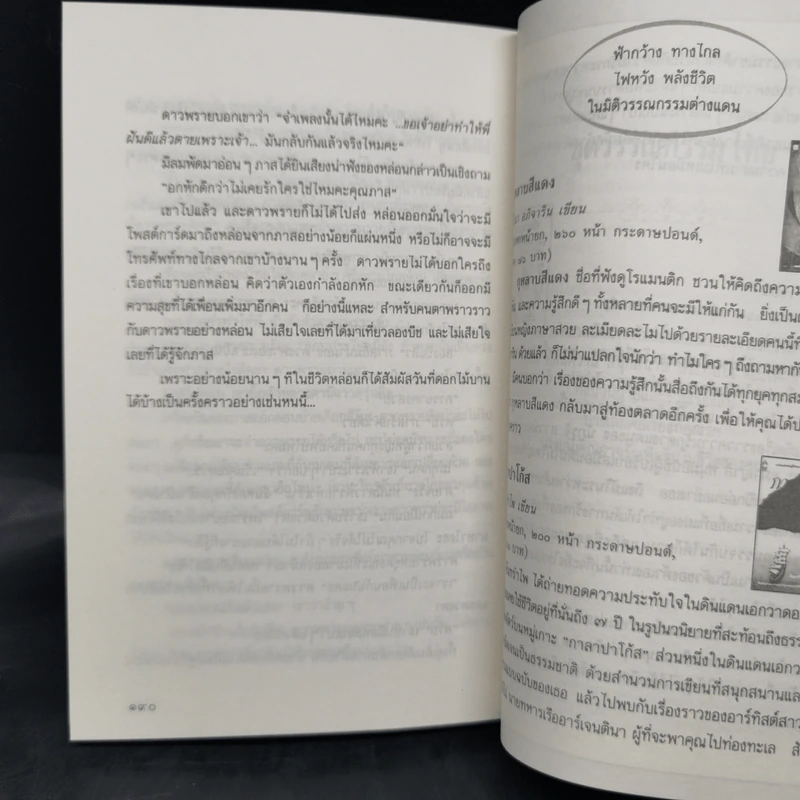 ดาวพรายบอกเขาว่า "จำเพลงนั้นได้ไหมคะ ...ขอเจ้าอย่าทำให้พี่
ฝันดีแล้วตายเพราะเจ้า... มันกลับกันแล้วจริงไหมคะ"
มีลมพัดมาอ่อน ๆ ภาสได้ยินเสียงน่าฟังของหล่อนกล่าวเป็นเชิงถาม
"อกหักดีกว่าไม่เคยรักใครใช่ไหมคะคุณภาส"
เขาไปแล้ว และดาวพรายก็ไม่ได้ไปส่ง หล่อนออกมั่นใจว่าจะมี
โพสต์การ์ดมาถึงหล่อนจากภาสอย่างน้อยก็แผ่นหนึ่ง หรือไม่ก็อาจจะมี
โทรศัพท์ทางไกลจากเขาบ้างนาน ๆ ครั้ง ดาวพรายไม่ได้บอกใครถึง
เรื่องที่เขาบอกหล่อน คิดว่าตัวเองกำลังอกหัก ขณะเดียวกันก็ออกมี
ความสุขที่ได้เพื่อนเพิ่มมาอีกคน ก็อย่างนี้แหละ สำหรับคนตาพราวราว
กับดาวพรายอย่างหล่อน ไม่เสียใจเลยที่ได้มาเที่ยวลองบีช และไม่เสียใจ
เลยที่ได้รู้จักภาส
เพราะอย่างน้อยนาน ๆ ทีในชีวิตหล่อนก็ได้สัมผัสวันที่ดอกไม้บาน
ได้บ้างเป็นครั้งคราวอย่างเช่นหนนี้...
๑๙๐
ฟ้ากว้าง ทางไกล
ไฟหวัง พลังชีวิต
ในมิติวรรณกรรมต่างแดน
หลาบสีแดง
อภิจาริน เขียน
หน้ายก, ๒๖๐ หน้า กระดาษปอนด์,
๗๖ บาท)
กุหลาบสีแดง ชื่อที่ฟังดูโรแมนติก ชวนให้คิดถึงความ
และความรู้สึกดี ๆ ทั้งหลายที่คนจะมีให้แก่กัน ยิ่งเป็น
หญิงภาษาสวย ละเมียดละไมไปด้วยรายละเอียดคนนี้ที่
ด้วยแล้ว ก็ไม่น่าแปลกใจนักว่า ทำไมใคร ๆ ถึงถามหากัน
บอกว่า เรื่องของความรู้สึกนั้นสื่อถึงกันได้ทุกยุคทุกสมัย
กุหลาบสีแดง กลับมาสู่ท้องตลาดอีกครั้ง เพื่อให้คุณได้
ปาโก้ส
เขียน
หน้ายก, ๒๐๐ หน้า กระดาษปอนด์,
บาท)
รำไพ ได้ถ่ายทอดความประทับใจในดินแดนเอกวาดอ
ใช้ชีวิตอยู่ที่นั่นถึง ๗ ปี ในรูปนวนิยายที่สะท้อนถึงธรร
บนหมู่เกาะ "กาลาปาโก้ส" ส่วนหนึ่งในดินแดนเอกว
เป็นธรรมชาติ ด้วยสำนวนการเขียนที่สนุกสนานและ
ฉบับของเธอ แล้วไปพบกับเรื่องราวของอาร์ทิสต์สาว
นายทหารเรืออาร์เจนตินา ผู้ที่จะพาคุณไปท่องทะเล